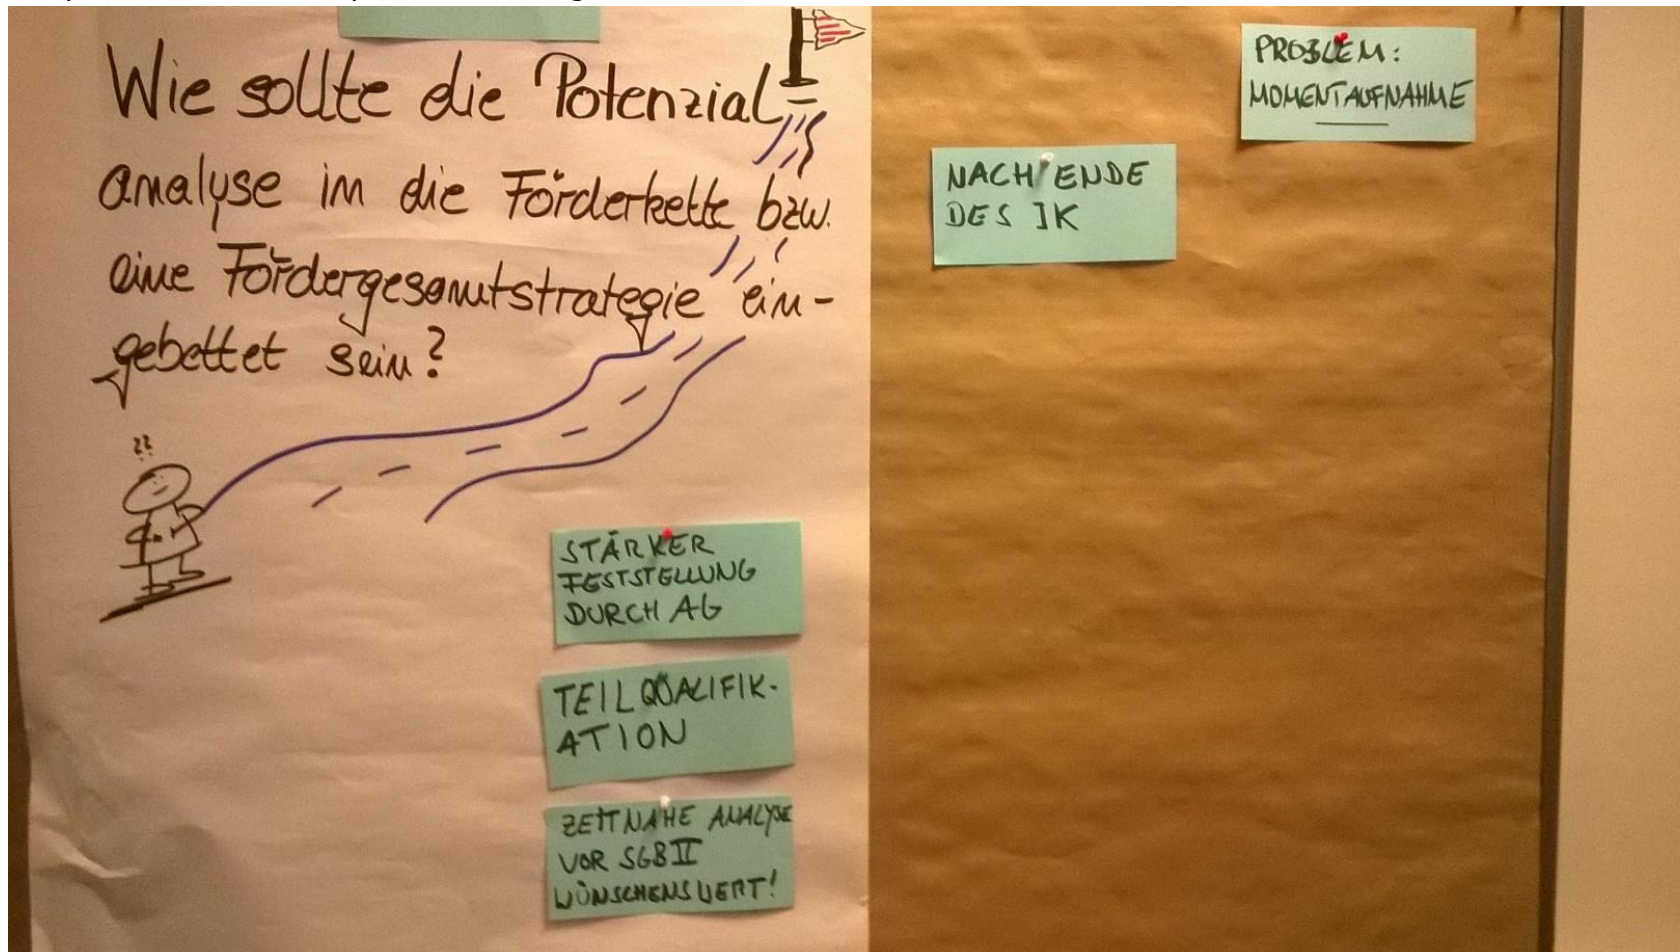 Wie sollte die Potenzial-
analyse in die Förderkette bzw.
eine Fördergesamtstrategie ein-
gebettet sein?
??
STÄRKER
FESTSTELLUNG
DURCH AG
TEILQUALIFIK-
ATION
ZEITNAHE ANALYSE
VOR SGB II
WÜNSCHENSWERT!
PROBLEM:
MOMENTAUFNAHME
NACH ENDE
DES IK